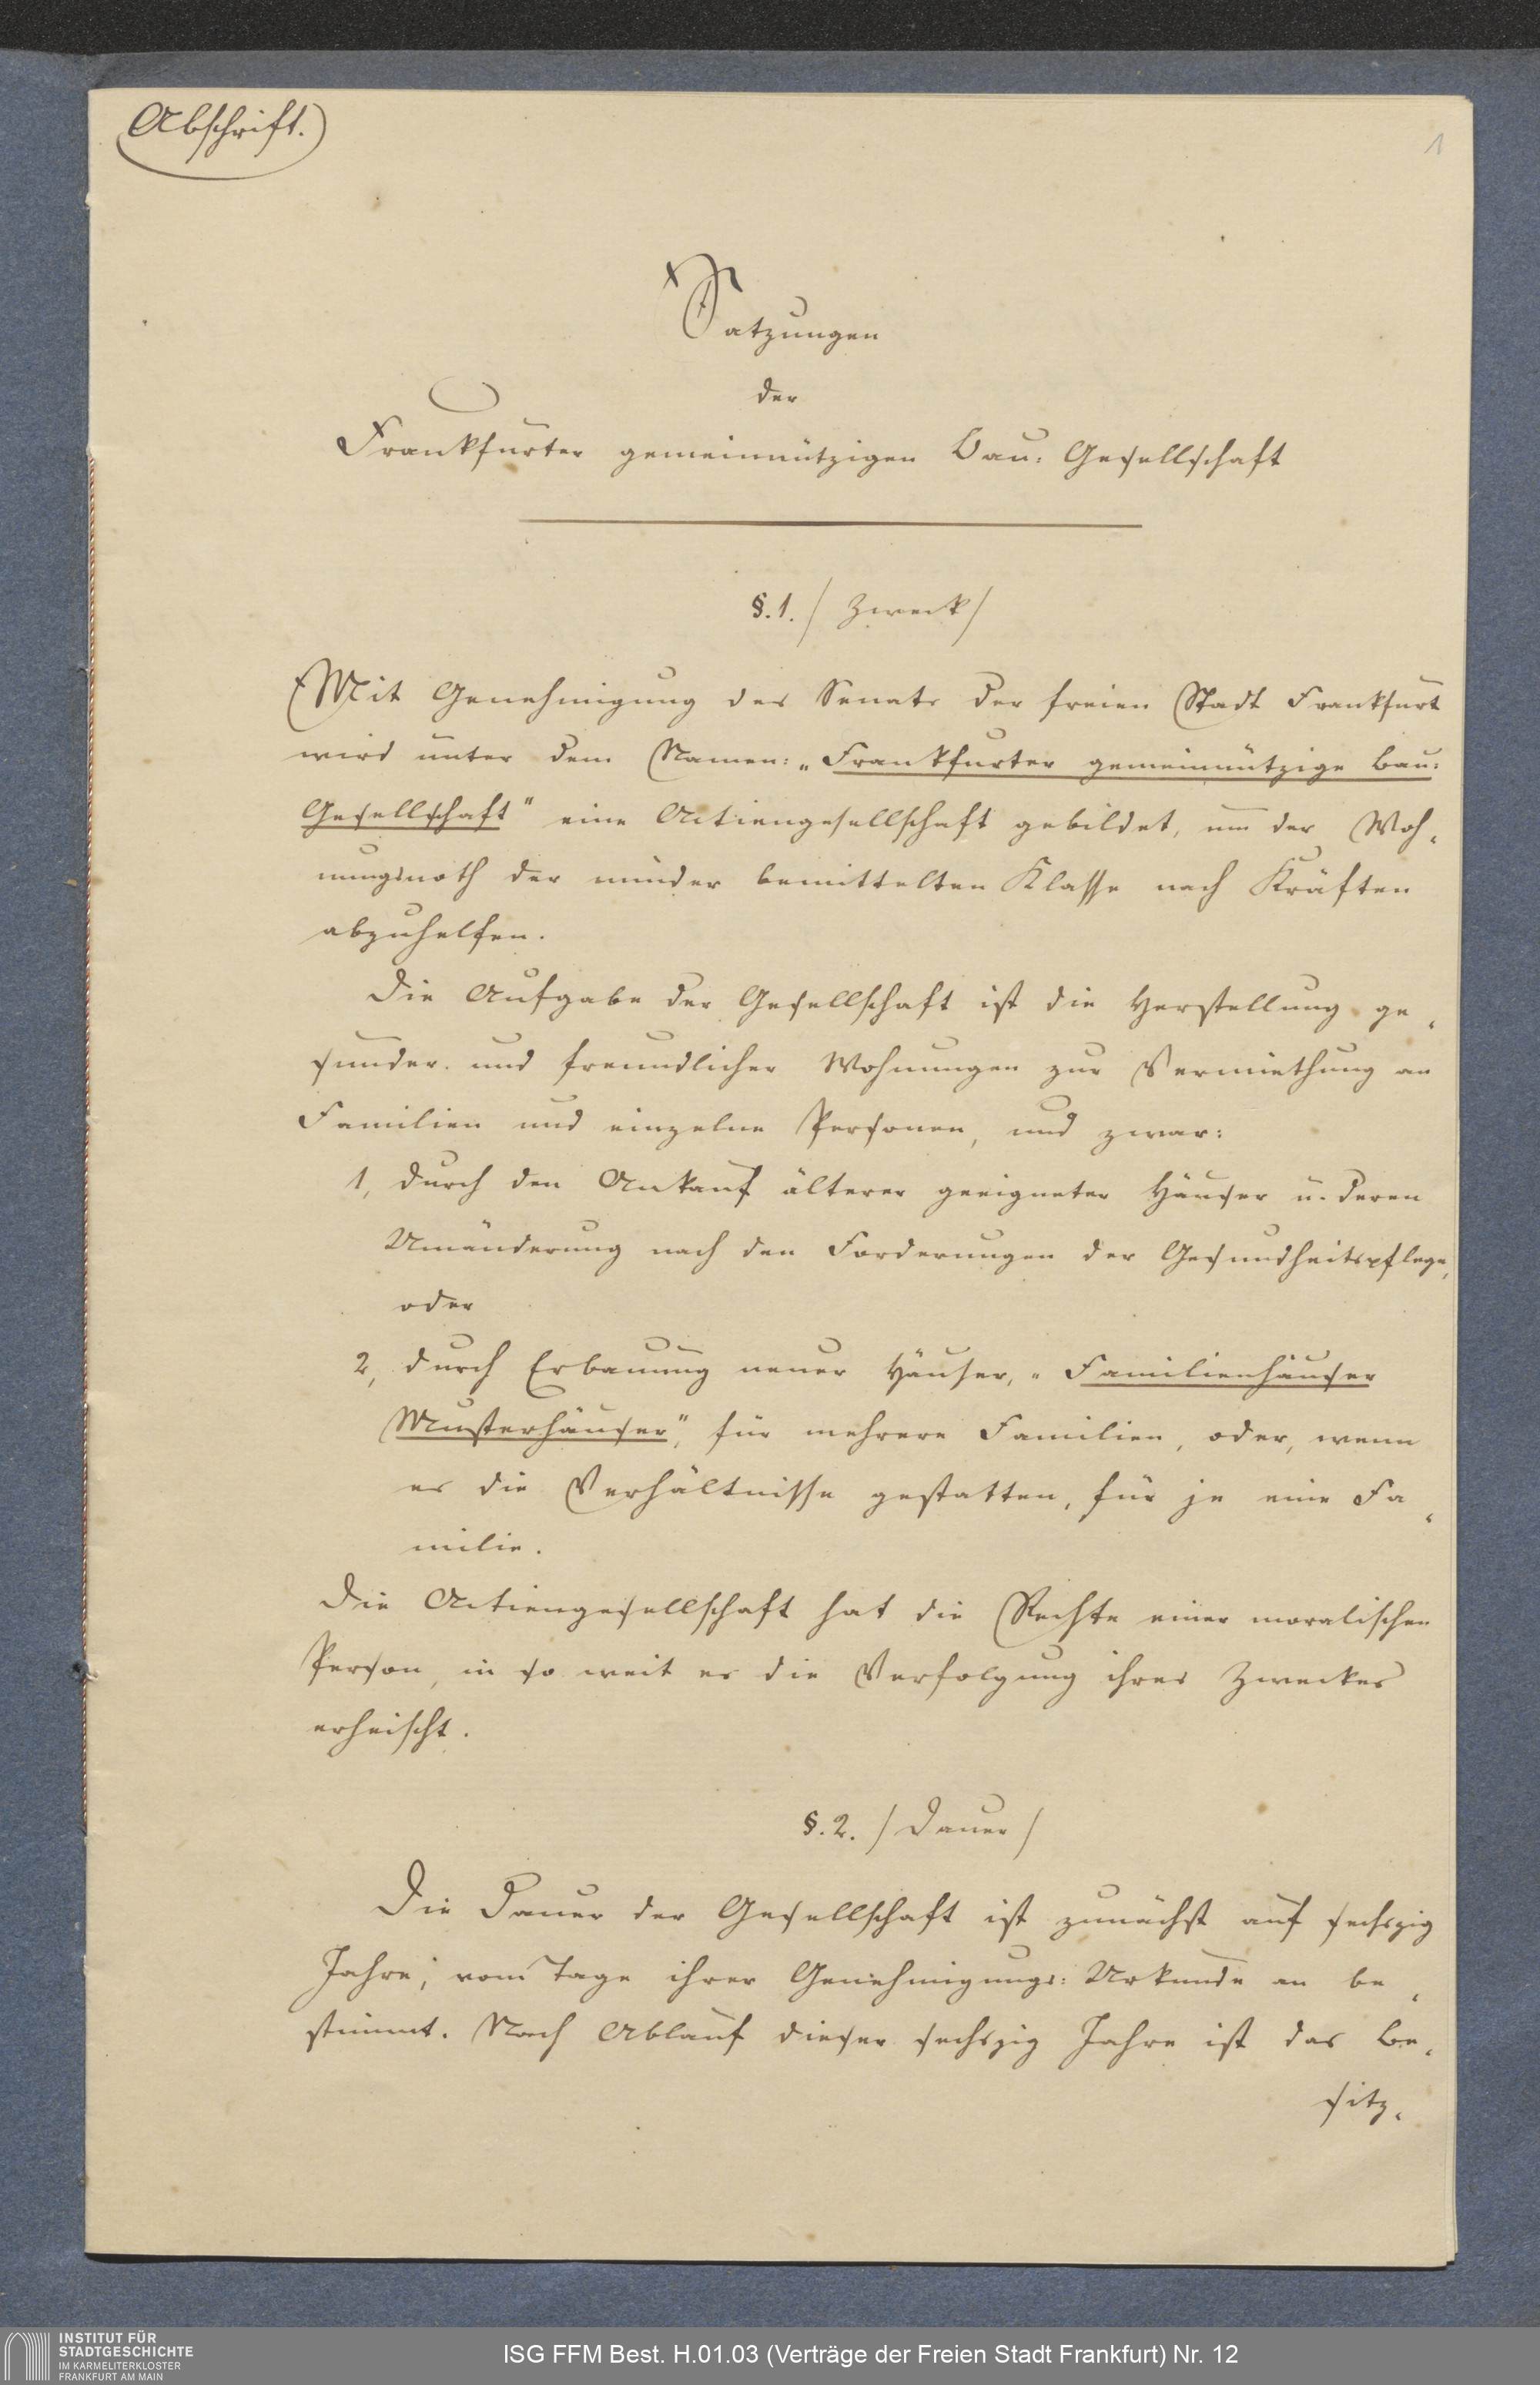 Abschrift.
1
Satzungen
der
Frankfurter gemeinnützigen Bau: Gesellschaft
§. 1. / Zweck /
Mit Genehmigung des Senats der freien Stadt Frankfurt
wird unter dem Namen: „Frankfurter gemeinnützige Bau:
Gesellschaft" eine Actiengesellschaft gebildet, um der Woh-
nungsnoth der minder bemittelten Klasse nach Kräften
abzuhelfen.
Die Aufgabe der Gesellschaft ist die Herstellung ge-
sunder und freundlicher Wohnungen zur Vermiethung an
Familien und einzelne Personen, und zwar:
1, durch den Ankauf älterer geeigneter Häuser u. deren
Umänderung nach den Forderungen der Gesundheitspflege,
oder
2, durch Erbauung neuer Häuser, „Familienhäuser
Musterhäuser", für mehrere Familien, oder, wenn
es die Verhältnisse gestatten, für je eine Fa-
milie.
Die Actiengesellschaft hat die Rechte einer moralischen
Person, in so weit es die Verfolgung ihres Zweckes
erheischt.
§. 2. / Dauer /
Die Dauer der Gesellschaft ist zunächst auf sechszig
Jahre, vom Tage ihrer Genehmigungs: Urkunde an be-
stimmt. Nach Ablauf dieser sechszig Jahre ist das Be-
sitz-
INSTITUT FÜR
STADTGESCHICHTE
IM KARMELITERKLOSTER
FRANKFURT AM MAIN
ISG FFM Best. H.01.03 (Verträge der Freien Stadt Frankfurt) Nr. 12